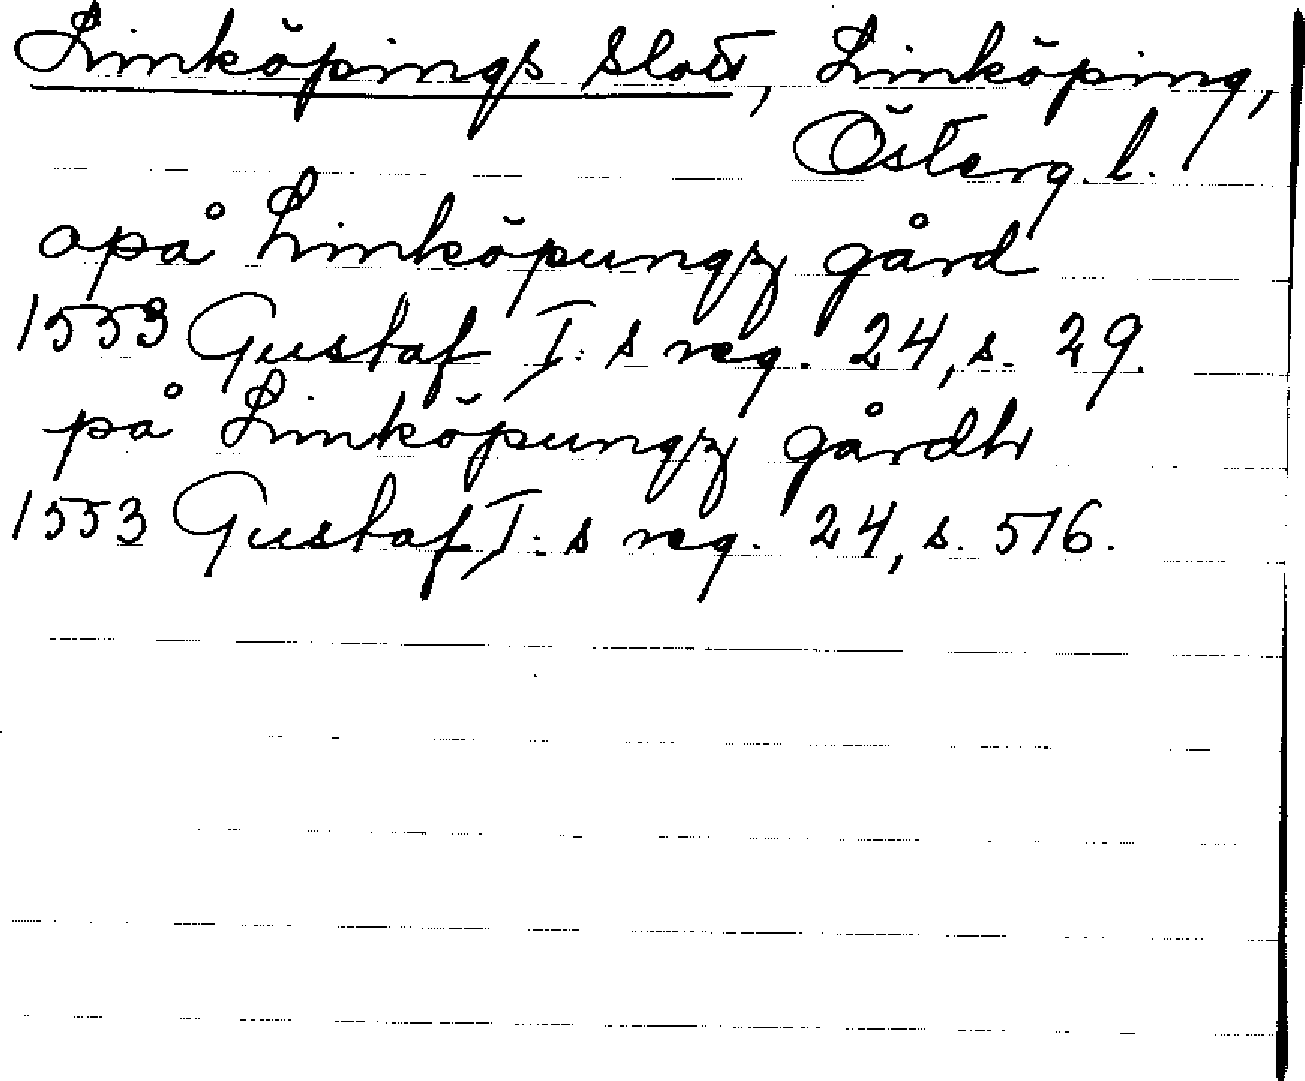 Linköpings slott, Linköping,
Österg. l.
apå Linköpungz gård
1553 Gustaf I:s reg. 24, s. 29.
på Linköpungz gårdh
1553 Gustaf I:s reg. 24, s. 576.